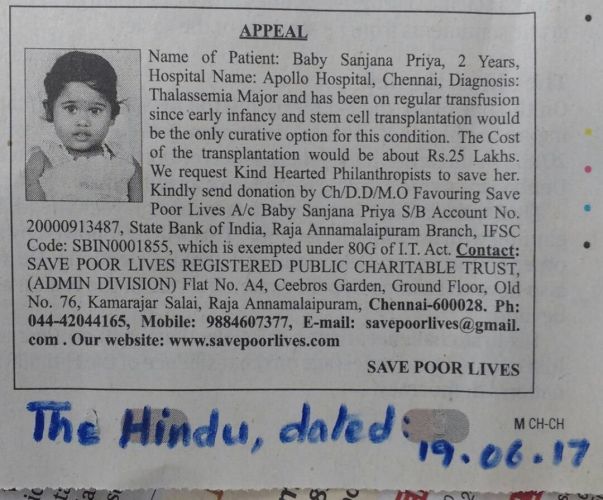 APPEAL
Name of Patient: Baby Sanjana Priya, 2 Years,
Hospital Name: Apollo Hospital, Chennai, Diagnosis:
Thalassemia Major and has been on regular transfusion
since early infancy and stem cell transplantation would
be the only curative option for this condition. The Cost
of the transplantation would be about Rs.25 Lakhs.
We request Kind Hearted Philanthropists to save her.
Kindly send donation by Ch/D.D/M.O Favouring Save
Poor Lives A/c Baby Sanjana Priya S/B Account No.
20000913487, State Bank of India, Raja Annamalaipuram Branch, IFSC
Code: SBIN0001855, which is exempted under 80G of I.T. Act. Contact:
SAVE POOR LIVES REGISTERED PUBLIC CHARITABLE TRUST,
(ADMIN DIVISION) Flat No. A4, Ceebros Garden, Ground Floor, Old
No. 76, Kamarajar Salai, Raja Annamalaipuram, Chennai-600028. Ph:
044-42044165, Mobile: 9884607377, E-mail: savepoorlives@gmail.
com . Our website: www.savepoorlives.com
SAVE POOR LIVES
M CH-CH
The Hindu, dated:
19.06.17